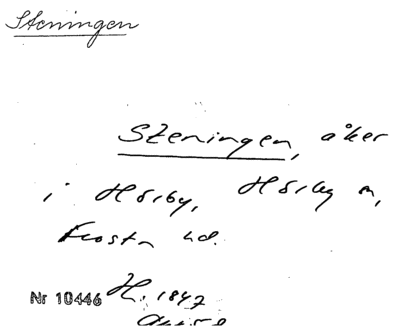 Steningen
Steningen, åker
i Hörby, Hörby sn,
Frosta hd.
Nr 10446 H. 1847